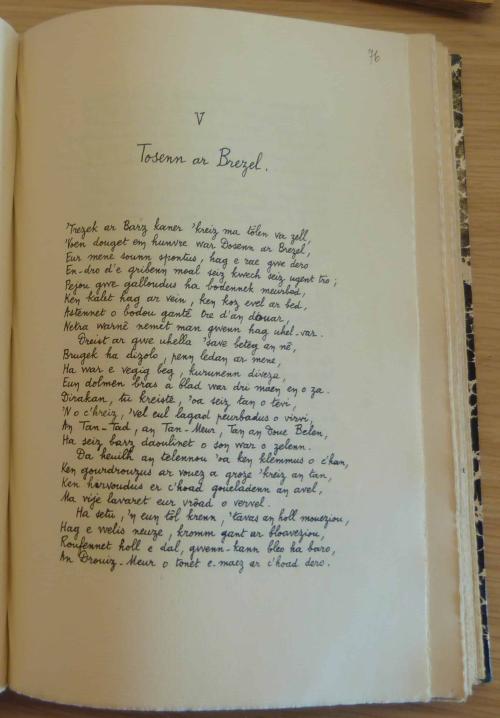 76
V
Tosenn ar Brezel.
'Trezek ar Barz kaner 'kreiz ma tôlen va zell,
'Voen douget em hunvre war Dosenn ar Brezel,
Eur mene sounn spontus, hag e rae gwe dero
En-dro d'e gribenn moal seiz kwech seiz ugent tro;
Pejou gwe galloudus ha bodennek meurbed,
Ken kalet hag ar vein, ken koz evel ar bed,
Astennet o bodou gantê tre d'an douar,
Netra warnê nemet man gwenn hag uhel-var.
Dreist ar gwe uhella 'save beteg an nê,
Brugek ha dizolo, penn ledan ar mene,
Ha war e vegig beg, kurunenn diveza,
Eun dolmen bras a blad war dri maen en o za.
Dirakan, tu kreiste, 'oa seiz tan o tevi,
'N o c'hreiz, 'vel eul lagad peurbadus o virvi,
An Tan-Tad, an Tan-Meur, Tan an Doue Belen,
Ha seiz barz daoulinet o son war o zelenn.
Da heuilh an telennou 'oa ken klemmus o c'han,
Ken gourdrouzus ar vouez a groze 'kreiz an tan,
Ken hirvoudus er c'hoad goueladenn an avel,
Ma vije lavaret eur vrôad o vervel.
Ha setu, 'n eun tôl krenn, 'tavas an holl moueziou,
Hag e welis neuze, kromm gant ar bloaveziou,
Roufennet holl e dal, gwenn-kann bleo ha baro,
An Drouiz-Meur o tonet e-maez ar c'hoad dero.